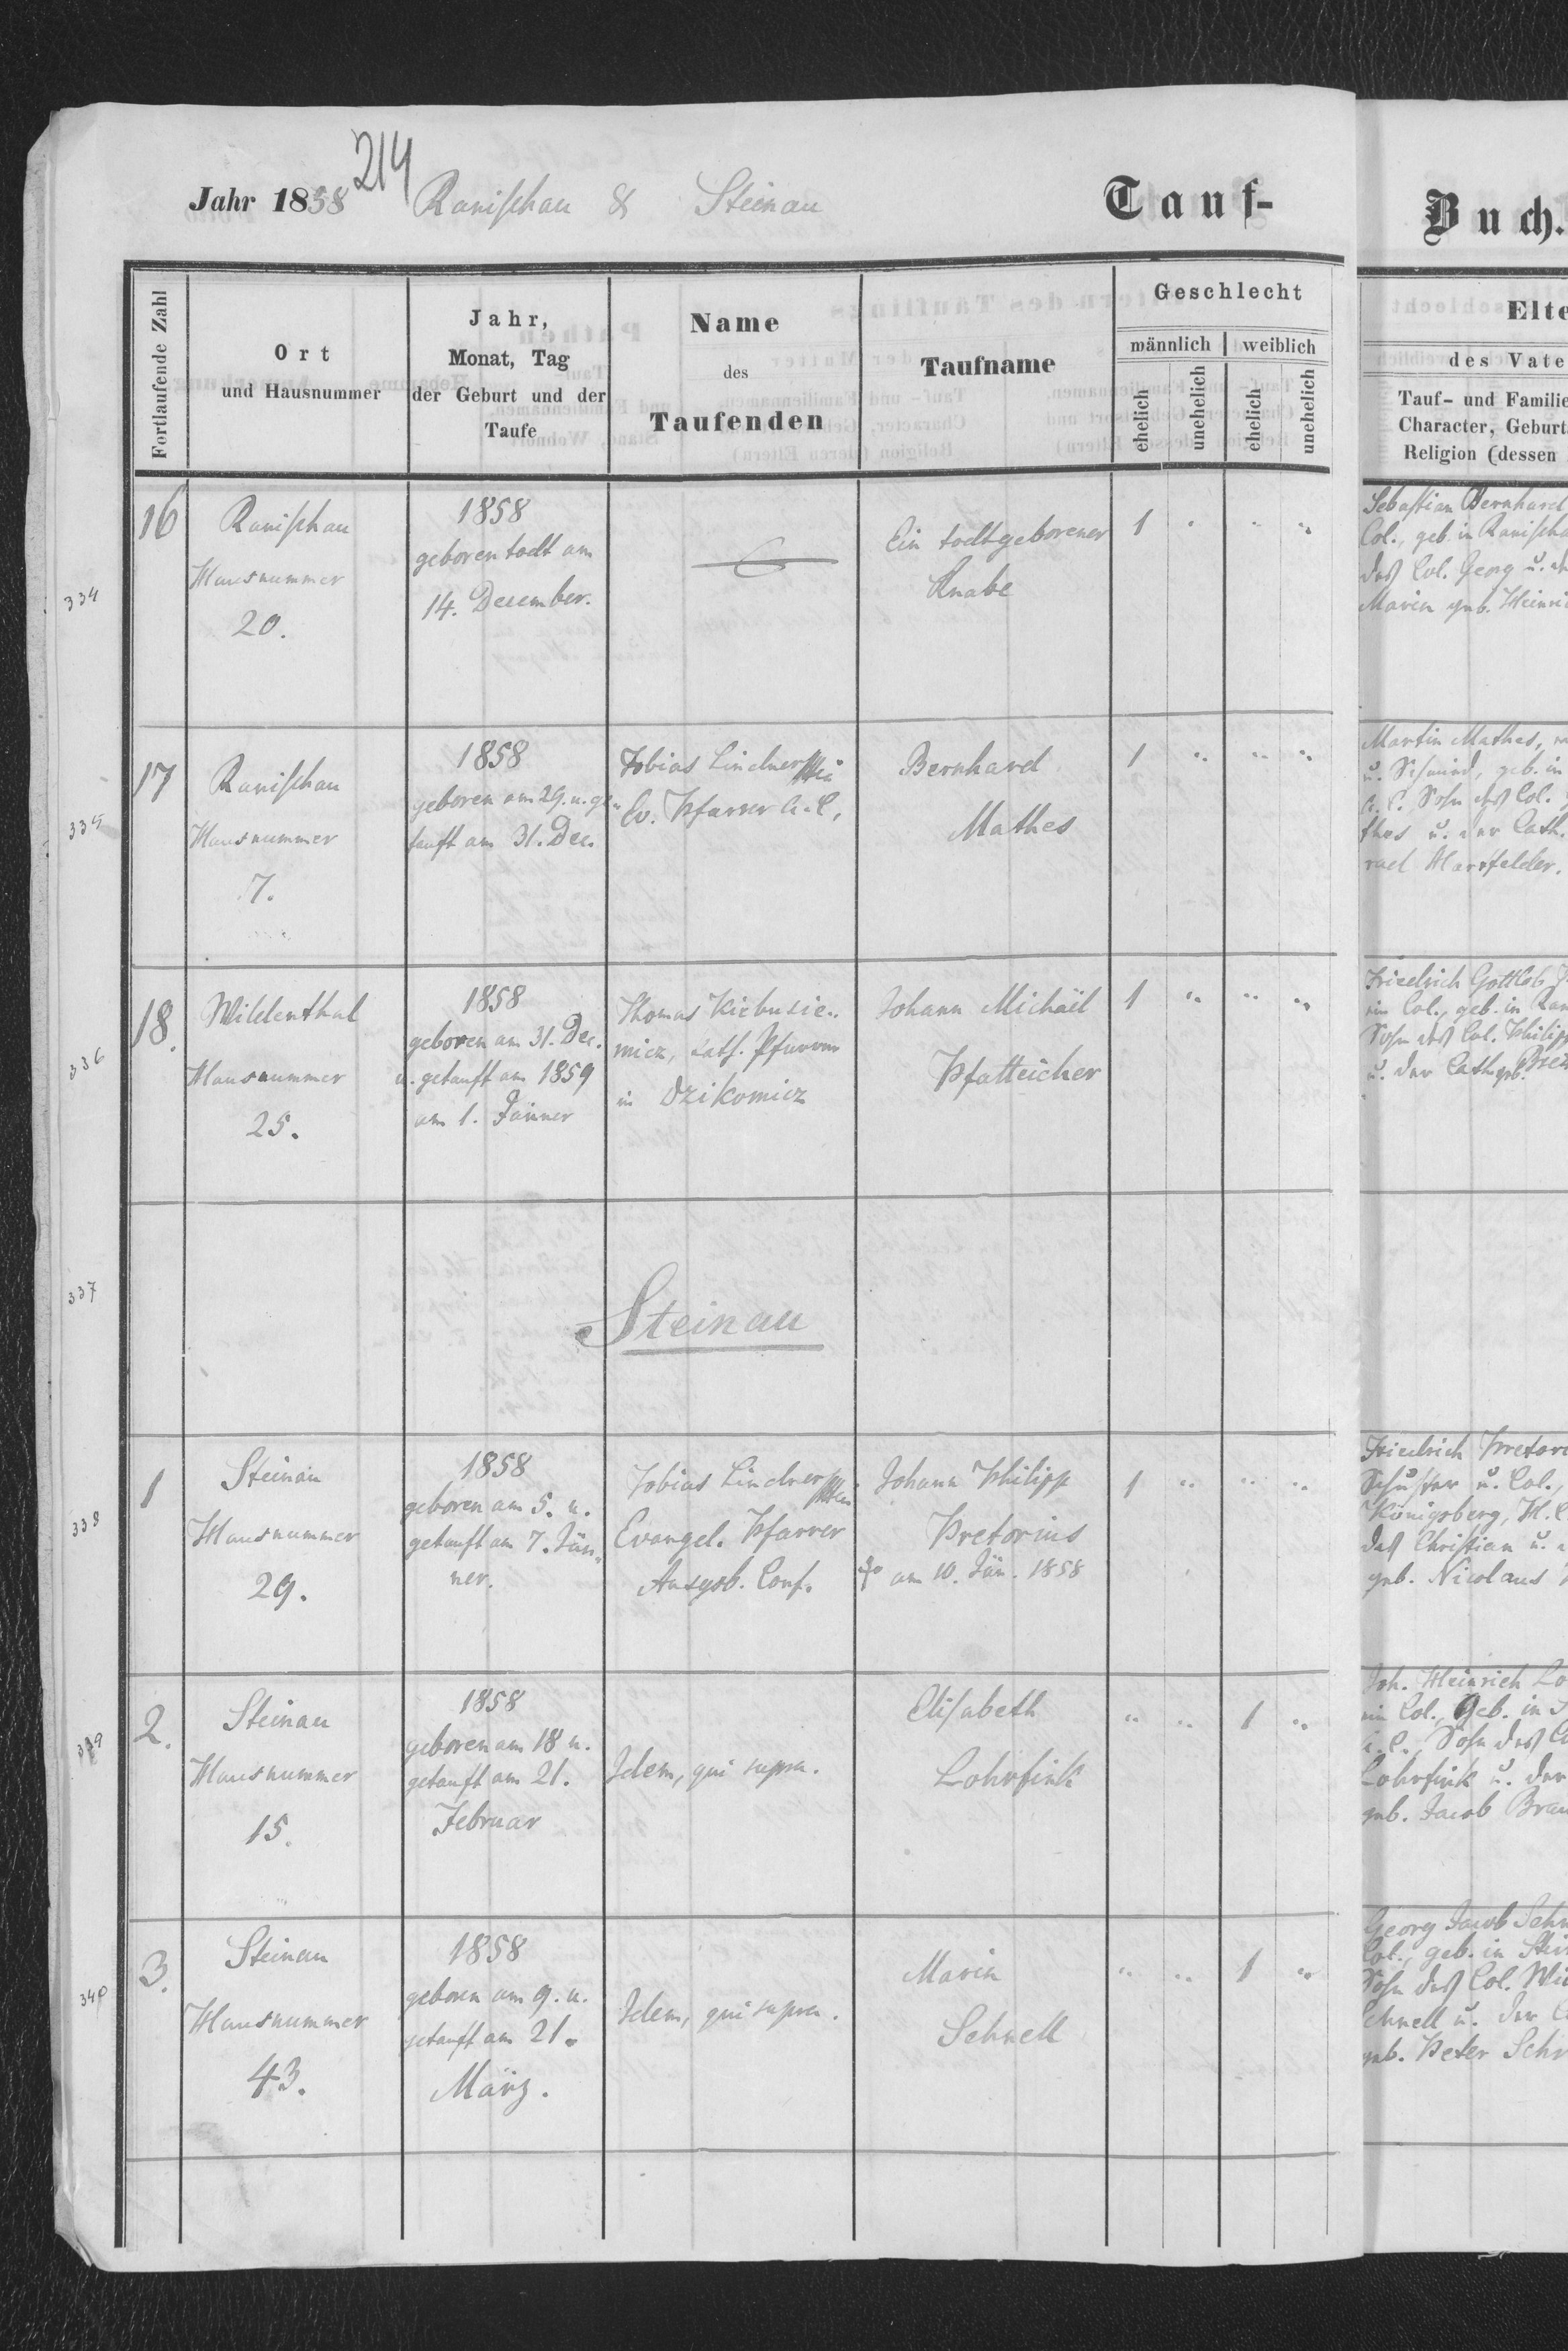 214
Jahr 1858 Ranischau & Steinau Tauf-
Buch.
Fortlaufende Zahl
Ort
und Hausnummer
Jahr,
Monat, Tag
der Geburt und der
Taufe
Name
des
Taufenden
Taufname
Geschlecht
männlich weiblich
ehelich unehelich ehelich unehelich
Elte
des Vate
Tauf- und Familie
Character, Geburts
Religion (dessen
334
16
Ranischau
Hausnummer
20.
1858
geboren todt am
14. December.
Ein todtgeborener
Knabe
1 " " "
Sebastian Bernhard
Col., geb. in Ranischa
des Col. Georg u. d
Marin geb. Heinri
335
17
Ranischau
Hausnummer
7.
1858
geboren am 29. u. ge-
tauft am 31. Dec.
Tobias Lindner
Ev. Pfarrer A. C.
Bernhard
Mathes
1 " " "
Martin Mathes,
u. Schmied, geb. in
A. C. Sohn des Col.
thes u. der Cath.
rael Harrfelder.
336
18.
Wildenthal
Hausnummer
25.
1858
geboren am 31. Dec.
u. getauft am 1859
am 1. Jänner
Thomas Kiebusie-
micz, kath. Pfarrer
in Dzikowiez
Johann Michäel
Pfatteicher
1 " " "
Friedrich Gottlob
ein Col., geb. in Ran
Sohn des Col. Philipp
u. der Cath. geb.
337
Steinau
338
1
Steinau
Hausnummer
29.
1858
geboren am 5. u.
getauft am 7. Jän-
ner.
Tobias Lindner
Evangel. Pfarrer
Augsb. Conf.
Johann Philipp
Pretorius
am 10. Jän. 1858
1 " " "
Friedrich Pretori
Schuster u. Col.,
Königsberg, H. C.
des Christian u.
geb. Nicolaus
339
2.
Steinau
Hausnummer
15.
1858
geboren am 18 u.
getauft am 21.
Februar
Idem, qui supra.
Elisabeth
Lohrfink
" " 1 "
Joh. Heinrich Lo
ein Col., geb. in S
A. C., Sohn des C
Lohrfink u. der
geb. Jacob Brau
340
3.
Steinau
Hausnummer
43.
1858
geboren am 9. u.
getauft am 21.
März.
Idem, qui supra.
Marin
Schnell
" " 1 "
Georg Jacob Schn
Col., geb. in Stei
Sohn des Col. Wil
Schnell u. der C
geb. Peter Schr